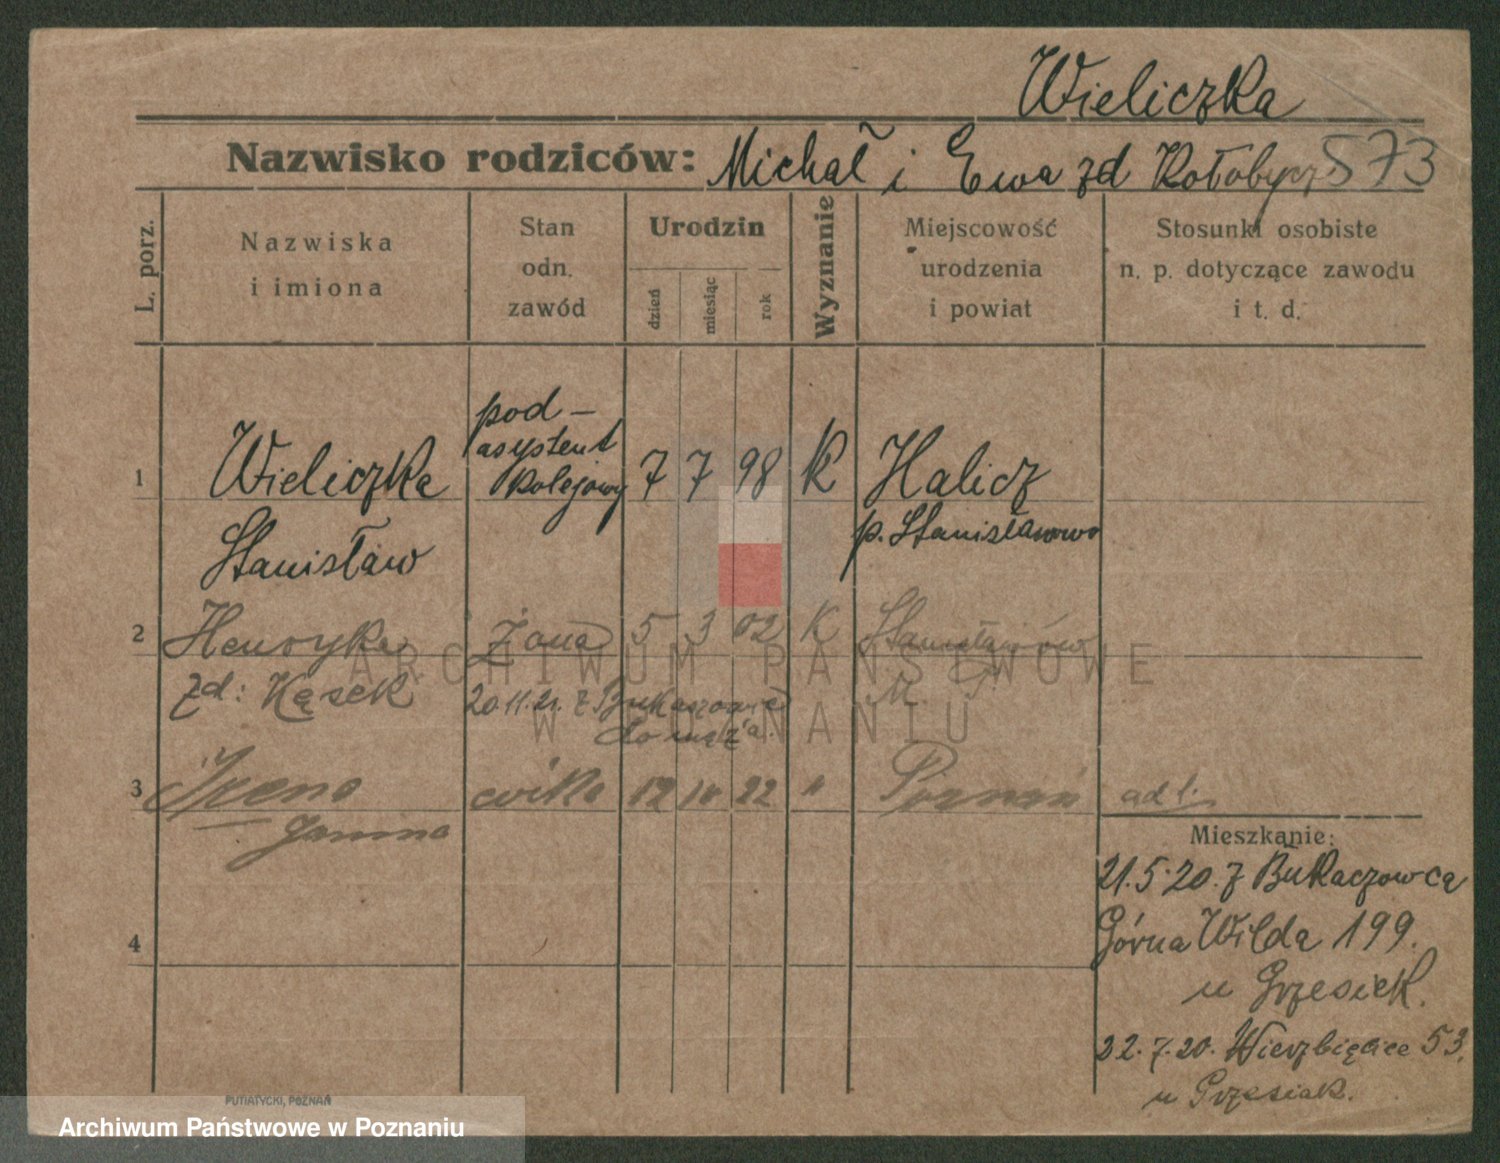 Wieliczka
Nazwisko rodziców: Michał i Ewa zd Kołobycz 573
L. porz.
Nazwiska i imiona
Stan odn. zawód
Urodzin
dzień miesiąc rok
Wyznanie
Miejscowość urodzenia i powiat
Stosunki osobiste n. p. dotyczące zawodu i t. d.
1 Wieliczka Stanisław
pod-
asystent
kolejowy
7 7 98 K Halicz
p. Stanisławowo
2 Henryka żona 5 3 02 K Stanisławów
zd: Kąsek 20.11.21. z Bukaszowiec
do męża.
3 Irena córka 12 10 22 " Poznań
Janina
4
Mieszkanie:
21.5.20. z Bukaczowca
Górna Wilda 199.
u Grzesiek.
22.7.20. Wierzbięcice 53.
u Grzesiak.
PUTIATYCKI, POZNAŃ
ARCHIWUM PAŃSTWOWE
W POZNANIU
Archiwum Państwowe w Poznaniu